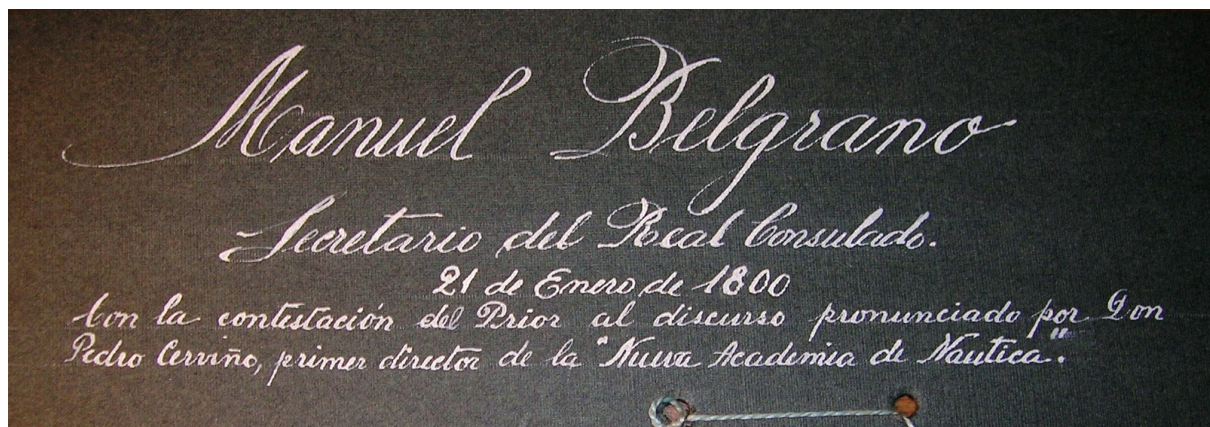 Manuel Belgrano
Secretario del Real Consulado.
21 de Enero de 1800
Con la contestación del Prior al discurso pronunciado por Don
Pedro Cerviño, primer director de la "Nueva Academia de Nautica".